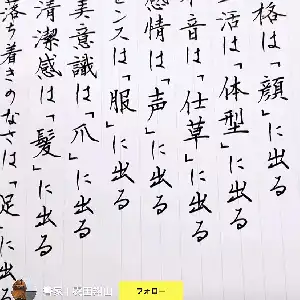 格は「顔」に出る
活は「体型」に出る
音は「仕草」に出る
感情は「声」に出る
センスは「服」に出る
美意識は「爪」に出る
清潔感は「髪」に出る
落ち着きのなさは「足」に出る
フォロー